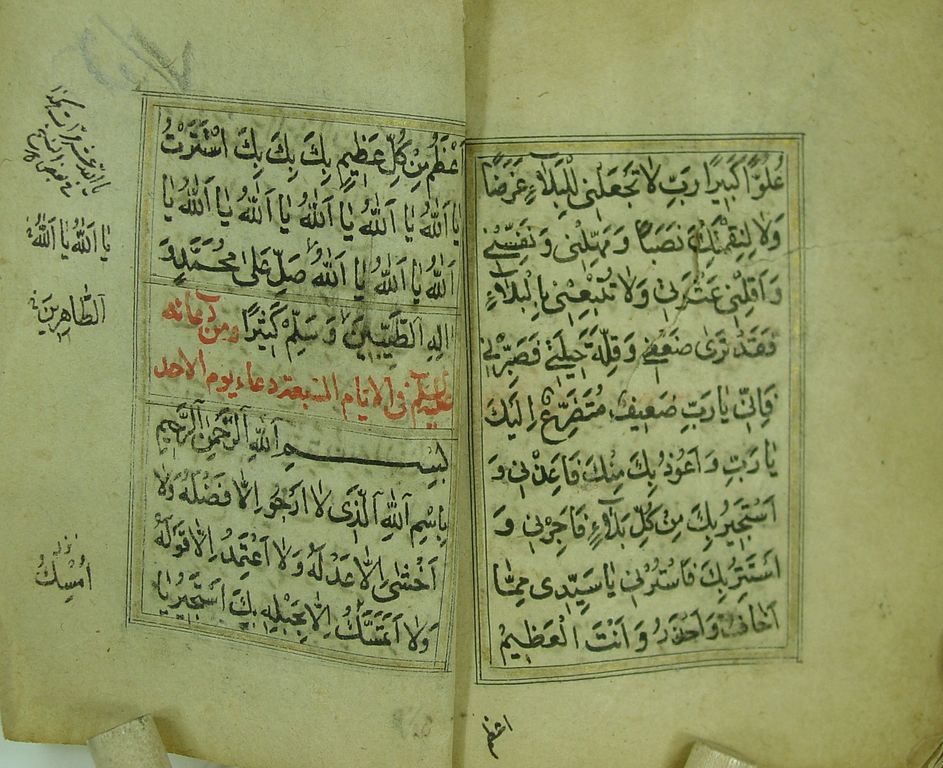 عُلُوًّا كَبِيرًا رَبِّ لَا تَجْعَلْنِي لِلْبَلَاءِ غَرَضًا
وَلَا لِنِقْمَتِكَ نَصَبًا وَمَهِّلْنِي وَنَفِّسْنِي
وَاَقِلْنِي عَثْرَتِي وَلَا تُتْبِعْنِي بِالْبَلَاءِ
فَقَدْ تَرَى ضَعْفِي وَقِلَّةَ حِيلَتِي فَصَبِّرْنِي
فَاِنِّي يَا رَبِّ ضَعِيفٌ مُتَضَرِّعٌ اِلَيْكَ
يَا رَبِّ وَاَعُوذُ بِكَ مِنْكَ فَاَعِذْنِي وَ
اَسْتَجِيرُ بِكَ مِنْ كُلِّ بَلَاءٍ فَاَجِرْنِي وَ
اَسْتَتِرُ بِكَ فَاسْتُرْنِي يَا سَيِّدِي مِمَّا
اَخَافُ وَاَحْذَرُ وَاَنْتَ الْعَظِيمُ
اعظم
اَعْظَمُ مِنْ كُلِّ عَظِيمٍ بِكَ بِكَ بِكَ اسْتَتَرْتُ
يَا اَللّٰهُ يَا اَللّٰهُ يَا اَللّٰهُ يَا اَللّٰهُ يَا اَللّٰهُ يَا
اَللّٰهُ يَا اَللّٰهُ يَا اَللّٰهُ صَلِّ عَلَى مُحَمَّدٍ وَ
اٰلِهِ الطَّيِّبِينَ وَسَلِّمْ كَثِيرًا ومن دعائه
عليه السلام في الايام السبعة دعاء يوم الاحد
بِسْمِ اللّٰهِ الرَّحْمٰنِ الرَّحِيمِ
بِاسْمِ اللّٰهِ الَّذِي لَا اَرْجُو اِلَّا فَضْلَهُ وَلَا
اَخْشَى اِلَّا عَدْلَهُ وَلَا اَعْتَمِدُ اِلَّا قَوْلَهُ
وَلَا اَتَمَسَّكُ اِلَّا بِحَبْلِهِ بِكَ اَسْتَجِيرُ يَا
يَا اَللّٰهُ يَا اَللّٰهُ
الطَّاهِرِينَ
اُمْسِكُ